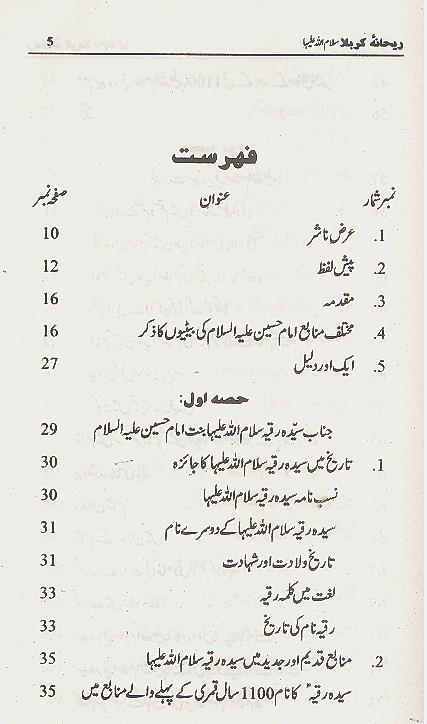 ریحانۂ کربلا سلام اللہ علیہا 5
فہرست
نمبر شمار عنوان صفحہ نمبر
1. عرض ناشر 10
2. پیش لفظ 12
3. مقدمہ 16
4. مختلف منابع امام حسین علیہ السلام کی بیٹیوں کا ذکر 16
5. ایک اور دلیل 27
حصہ اول:
جناب سیّدہ رقیہ سلام اللہ علیہا بنت امام حسین علیہ السلام 29
1. تاریخ میں سیدہ رقیہ سلام اللہ علیہا کا جائزہ 30
نسب نامہ سیدہ رقیہ سلام اللہ علیہا 30
سیدہ رقیہ سلام اللہ علیہا کے دوسرے نام 31
تاریخ ولادت اور شہادت 31
لغت میں کلمہ رقیہ 33
رقیہ نام کی تاریخ 33
2. منابع قدیم اور جدید میں سیدہ رقیہ سلام اللہ علیہا 35
سیدہ رقیہؑ کا نام 1100 سال قمری کے پہلے والے منابع میں 35